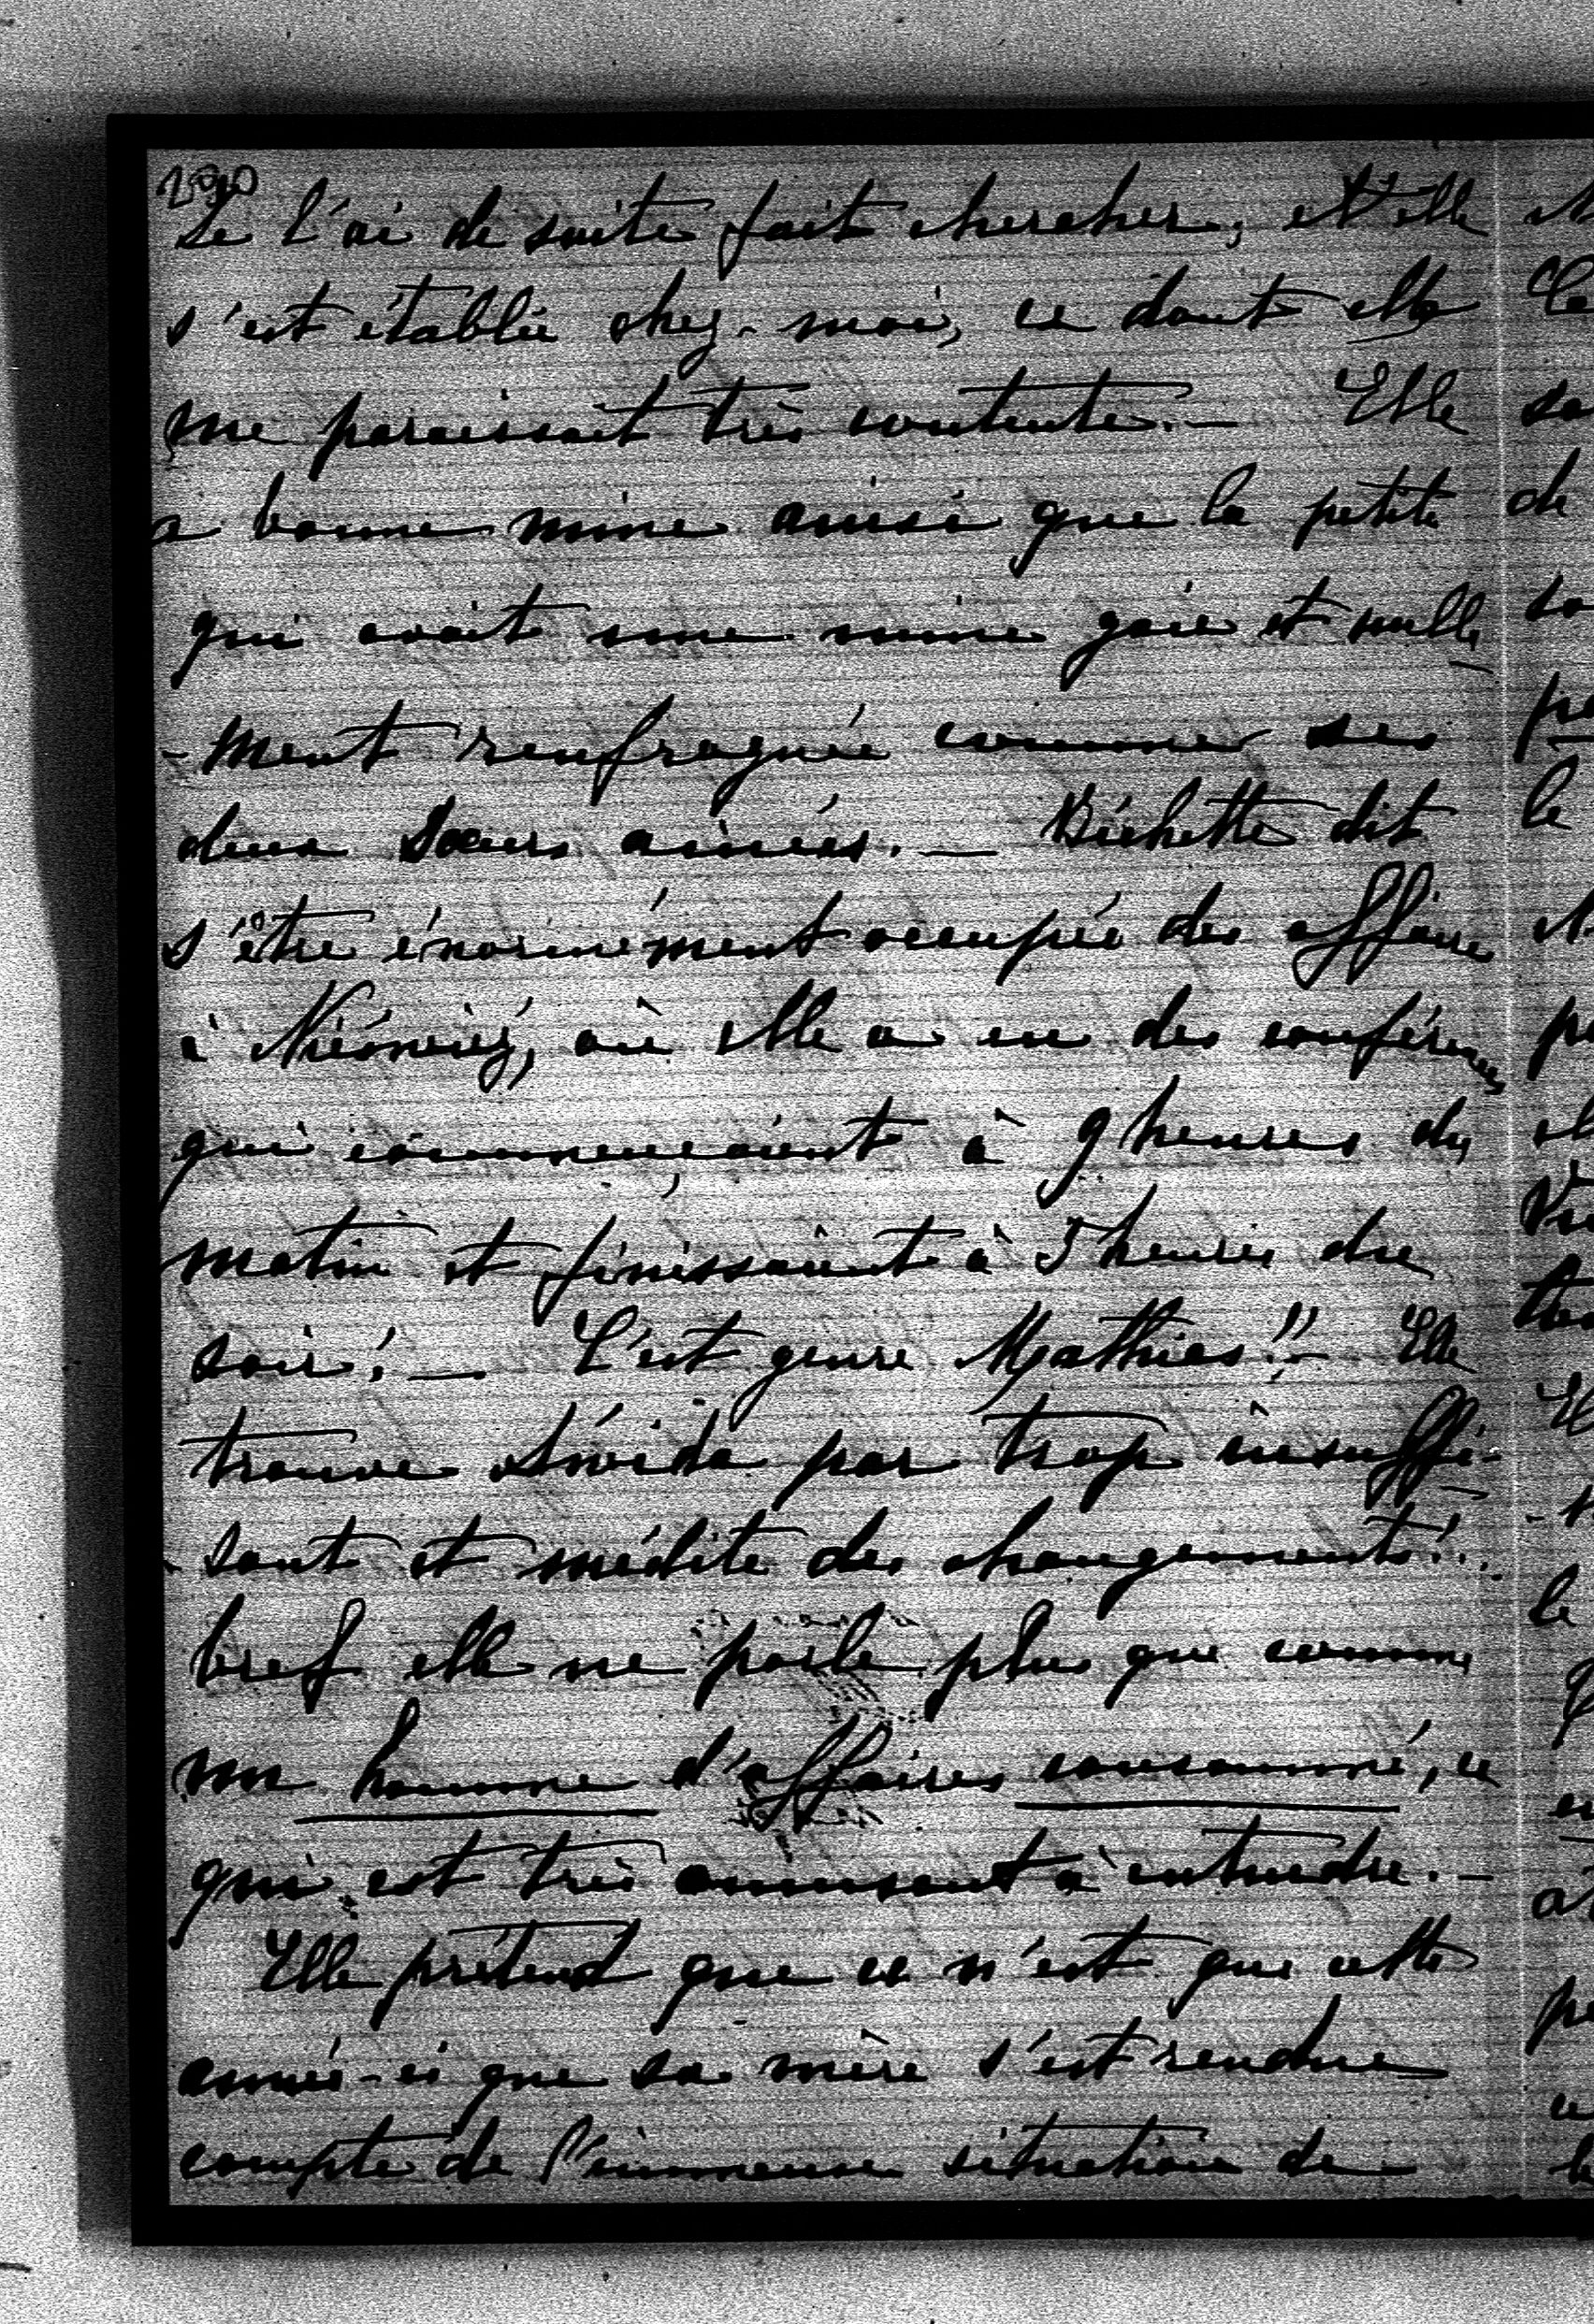 Je l'ai de suite fait chercher, et elle
s'est établie chez-moi, ce dont elle
me paraissait très contente.—  Elle
a bonne mine ainsi que la petite
qui avait une mine gaie et nulle
-ment renfrognée comme ses
deux sœurs ainées.— Bichette dit
s'être énormément occupée des affaires
à Nieśwież, où elle a eu des conférences
qui commençaient à 9 heures du
matin et finissaient à 5 heures du
soir!— C'est genre Mathias!!— Elle
trouve par trop insuffi-
-sant et médite des changements!..
bref elle ne parle plus que comme
un homme d'affaires consommé, ce
qui est très amusant à entendre.—
Elle prétend que ce n'est que cette
année-ci que sa mère s'est rendue
compte de l'immense situation de